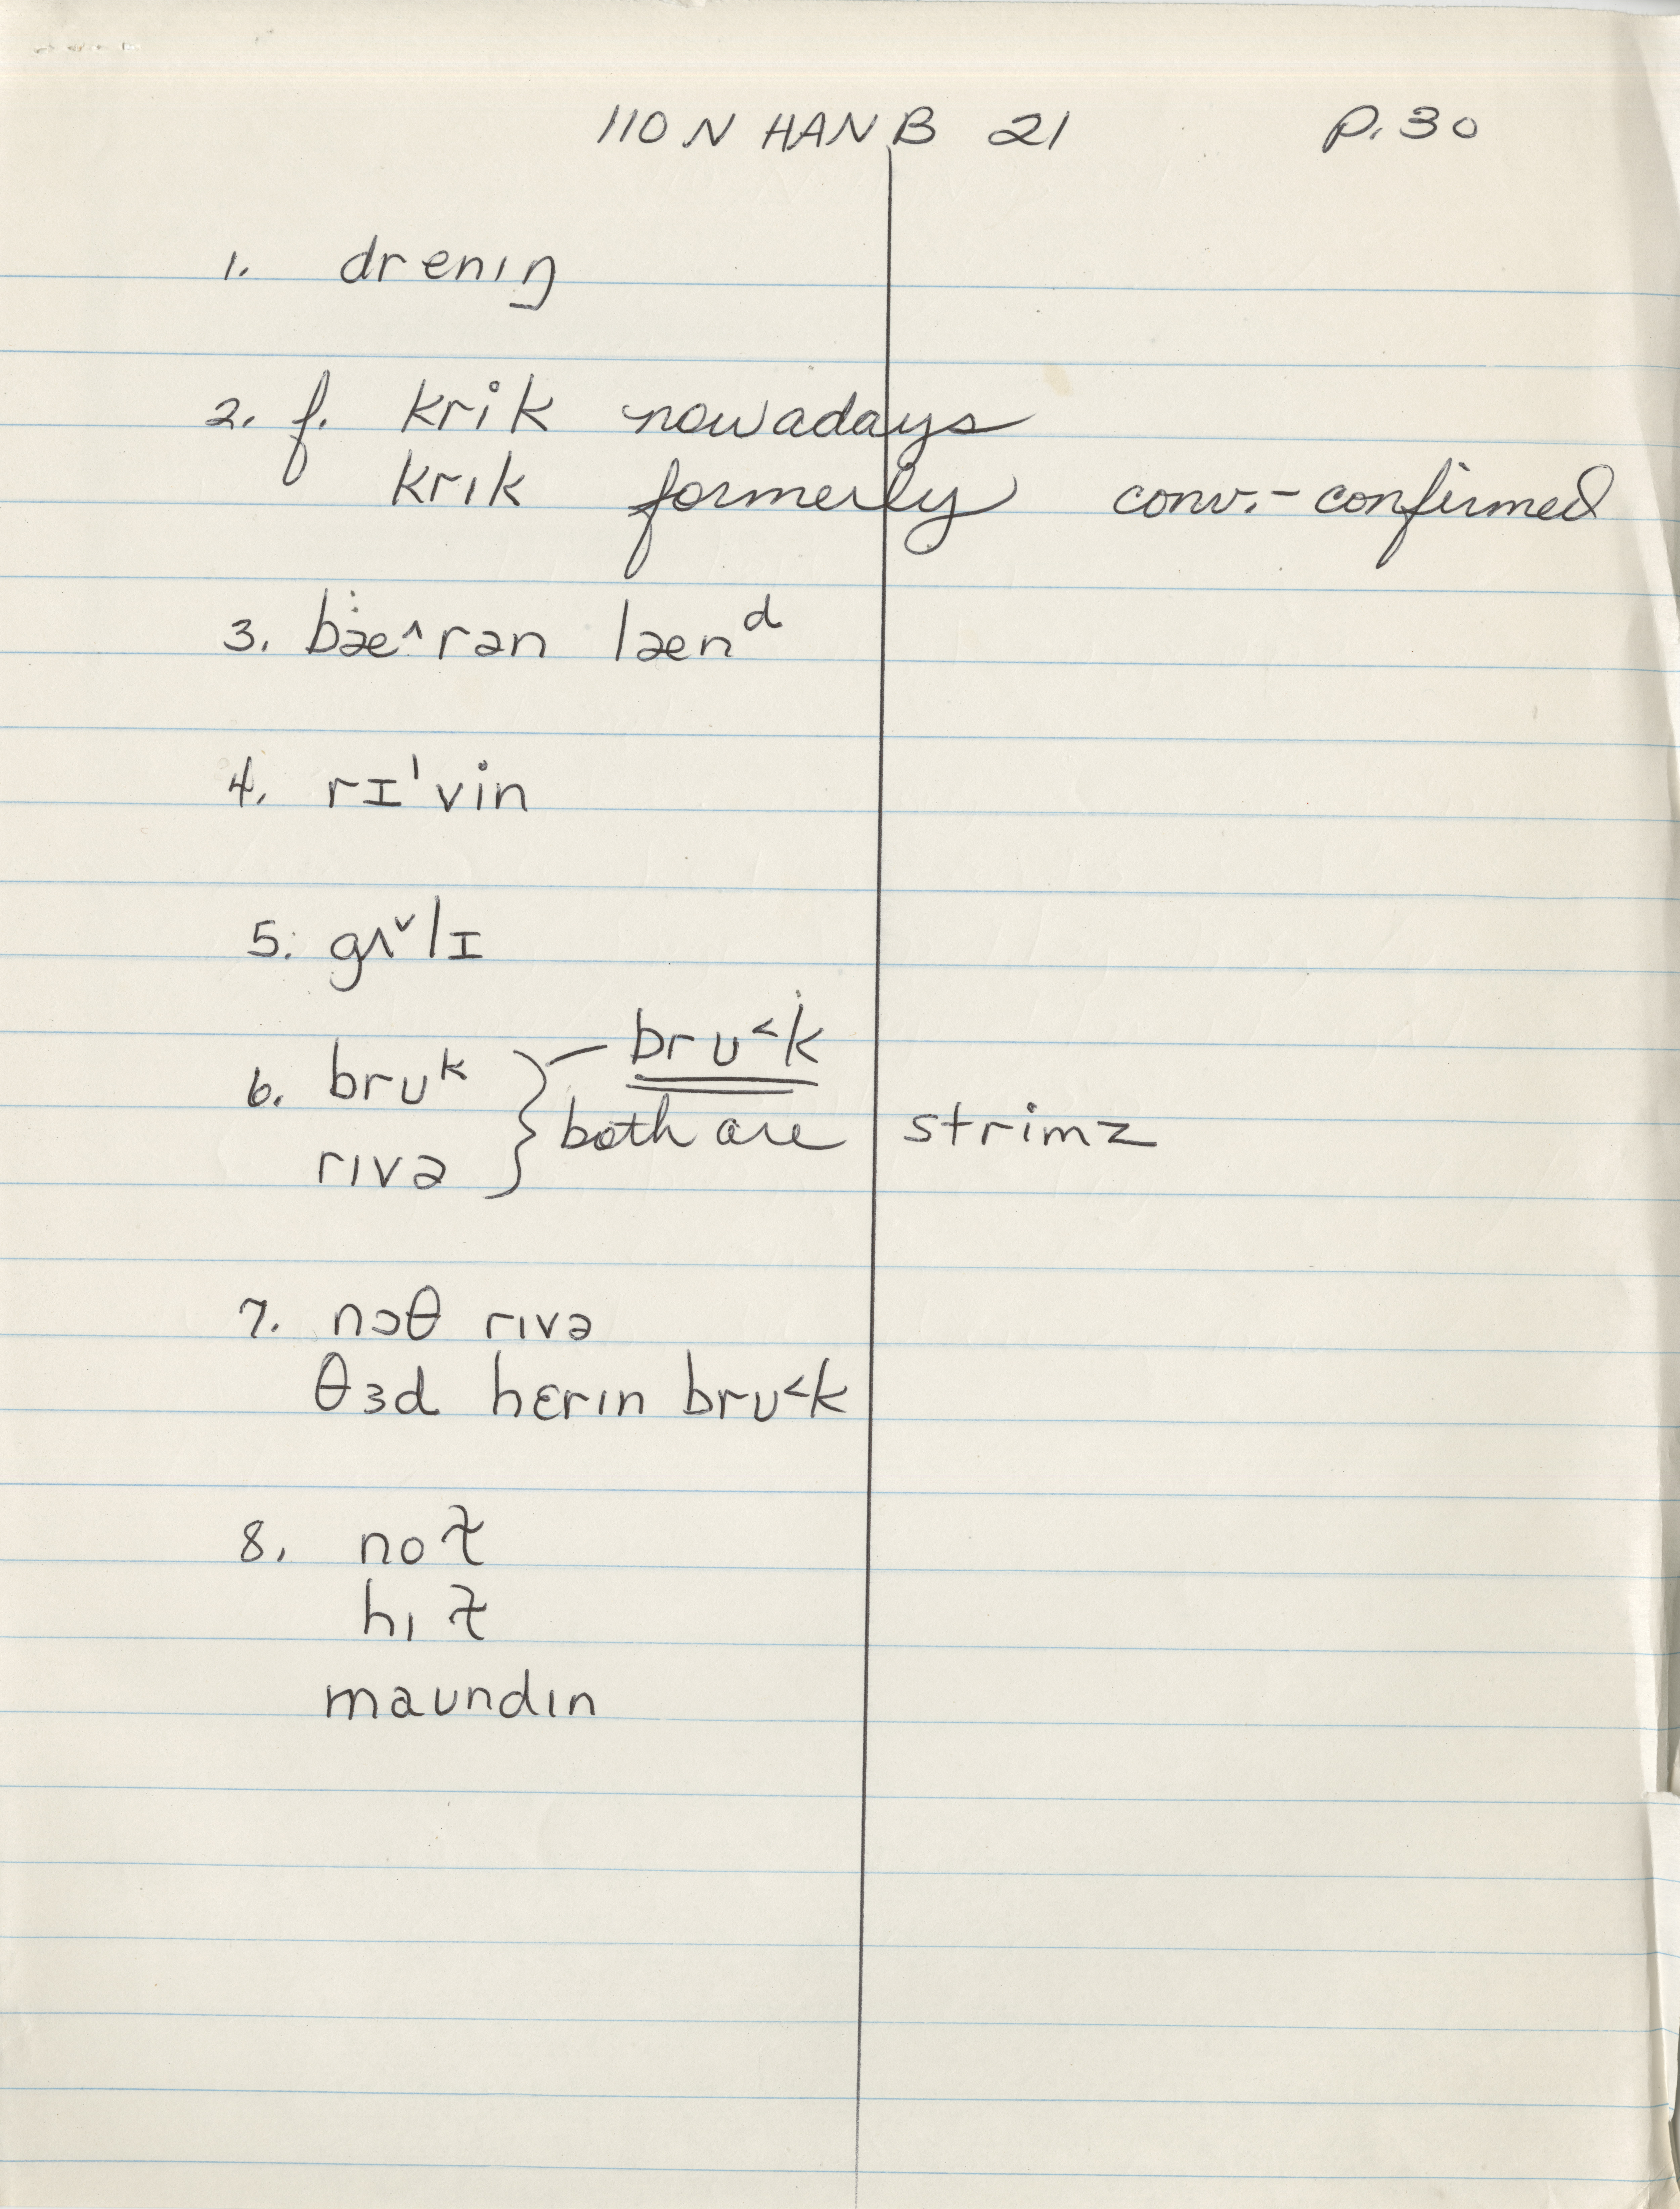 110 N HAN B 21 p. 30
1. drenıŋ
2. f. krik nowadays
krık formerly conv. - confirmed
3. bæ^rən lænᵈ
4. rɪ'vin
5. gʌˇlɪ
6. brᴜᵏ } — brᴜ˂k
rıvə } both are strimz
7. nɔθ rıvə
θɜd hɛrın brᴜ˂k
8. no
hı
maᴜndın